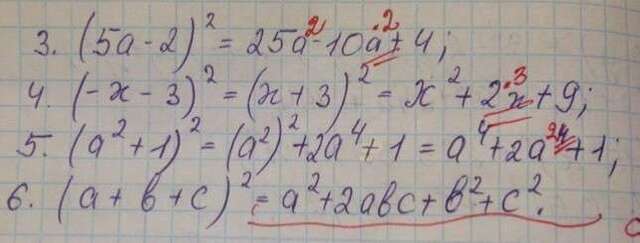 3. (5a-2)² = 25a²-10a·2+4;
4. (-x-3)² = (x+3)² = x²+2·3x+9;
5. (a²+1)² = (a²)²+2a⁴+1 = a⁴+2a²+1;
6. (a+b+c)² = a²+2abc+b²+c².